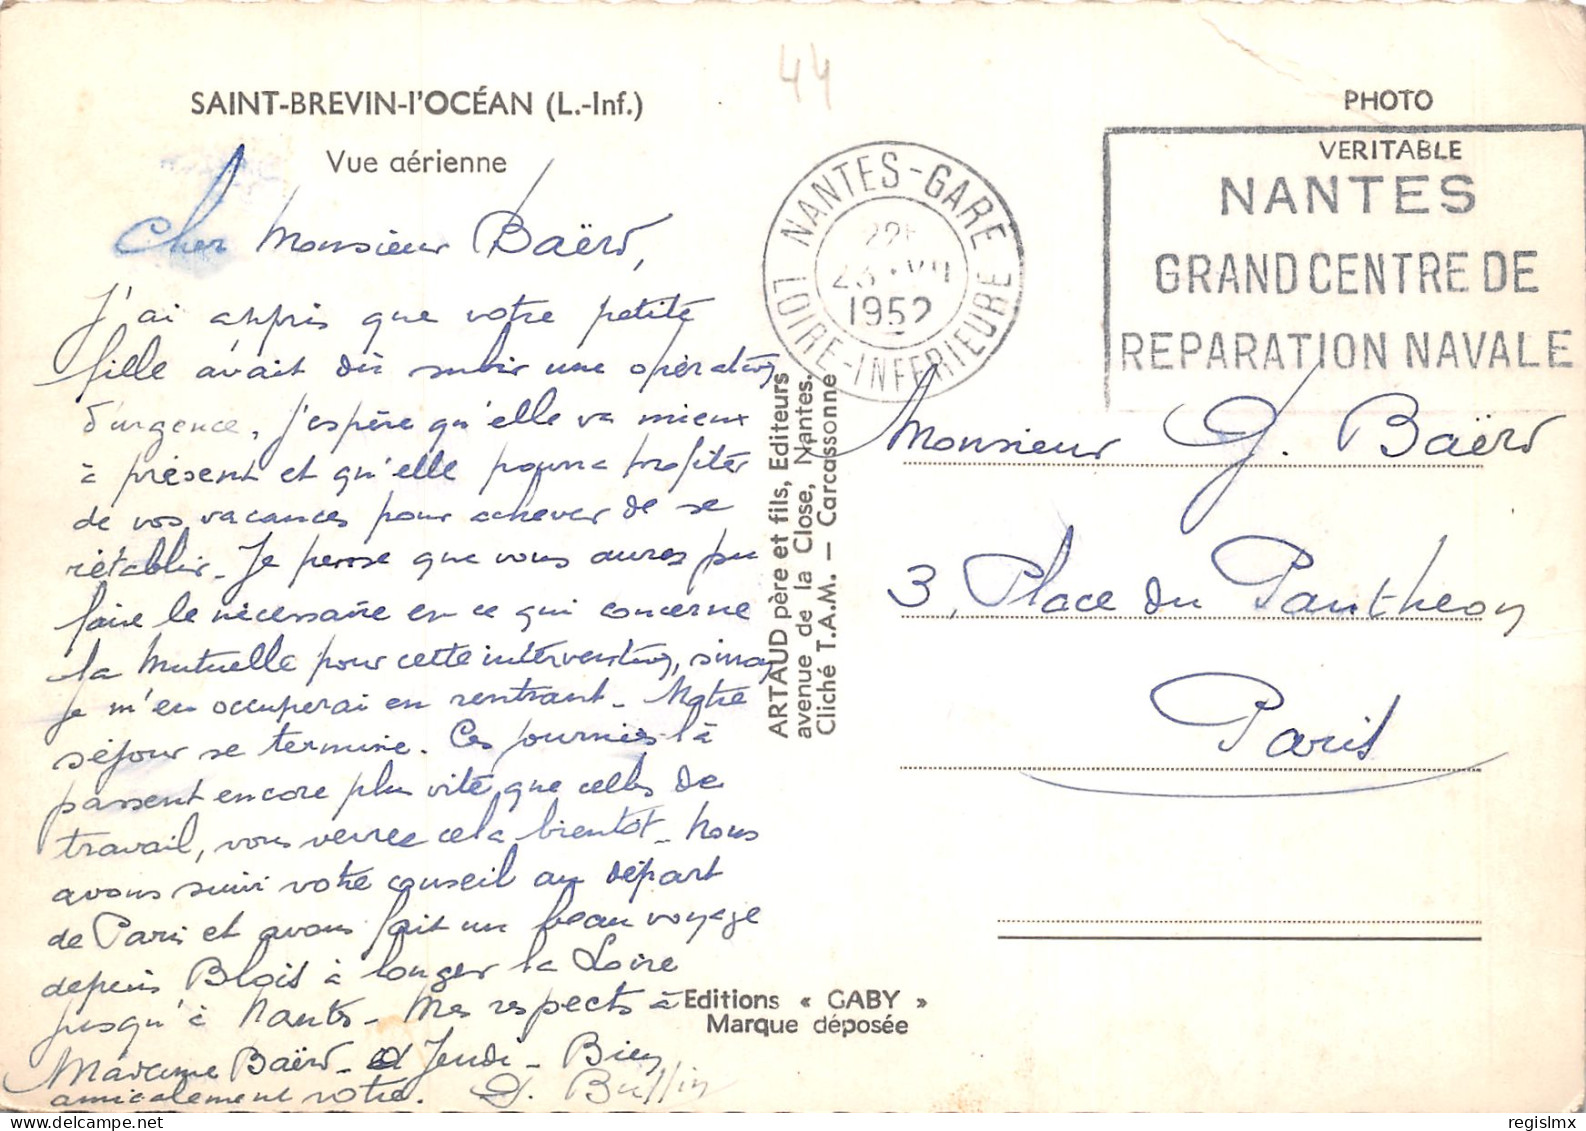 44
SAINT-BREVIN-l'OCÉAN (L.-Inf.)
Vue aérienne
Cher Monsieur Baërd,
J'ai appris que votre petite
fille avait dû subir une opération
d'urgence, j'espère qu'elle va mieux
à présent et qu'elle pourra profiter
de vos vacances pour achever de se
rétablir. Je pense que vous aurez pu
faire le nécessaire en ce qui concerne
la Mutuelle pour cette intervention, sinon
je m'en occuperai en rentrant. Notre
séjour se termine. Ces journées-là
passent encore plus vite que celles de
travail, vous verrez cela bientôt. Nous
avons suivi votre conseil au départ
de Paris et avons fait un beau voyage
depuis Blois à longer la Loire
jusqu'à Nantes. Mes respects à
Madame Baërd et Jendi. Bien
amicalement votre.
ARTAUD père et fils, Editeurs
avenue de la Close, Nantes.
Cliché T.A.M. — Carcassonne
Editions « GABY »
Marque déposée
NANTES-GARE
23 · VII
1952
LOIRE-INFERIEURE
PHOTO
VERITABLE
NANTES
GRAND CENTRE DE
REPARATION NAVALE
Monsieur G. Baërd
3, Place du Panthéon
Paris
regislmx